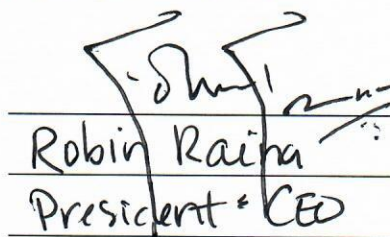 Robin Raina
President & CEO